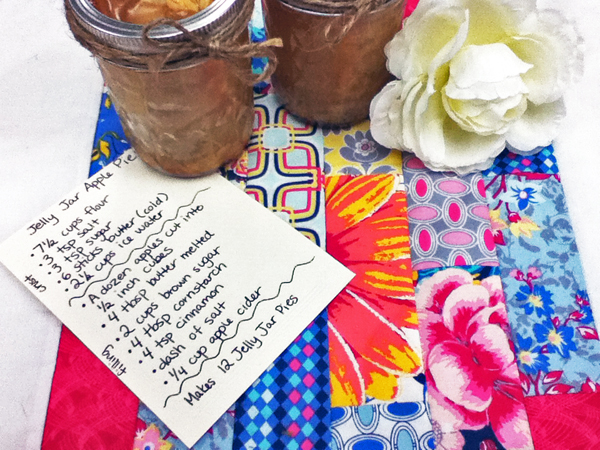 Jelly Jar Apple Pie
• 7 1/2 cups flour
• 3 tsp salt
• 3 tsp sugar
• 6 sticks butter (cold)
• 2 1/4 cups ice water
crust
• A dozen apples cut into
1/2 inch cubes
• 4 tbsp butter melted
• 2 cups brown sugar
• 4 tbsp cornstarch
• 4 tsp cinnamon
• dash of salt
• 1/4 cup apple cider
filling
Makes 12 Jelly Jar Pies